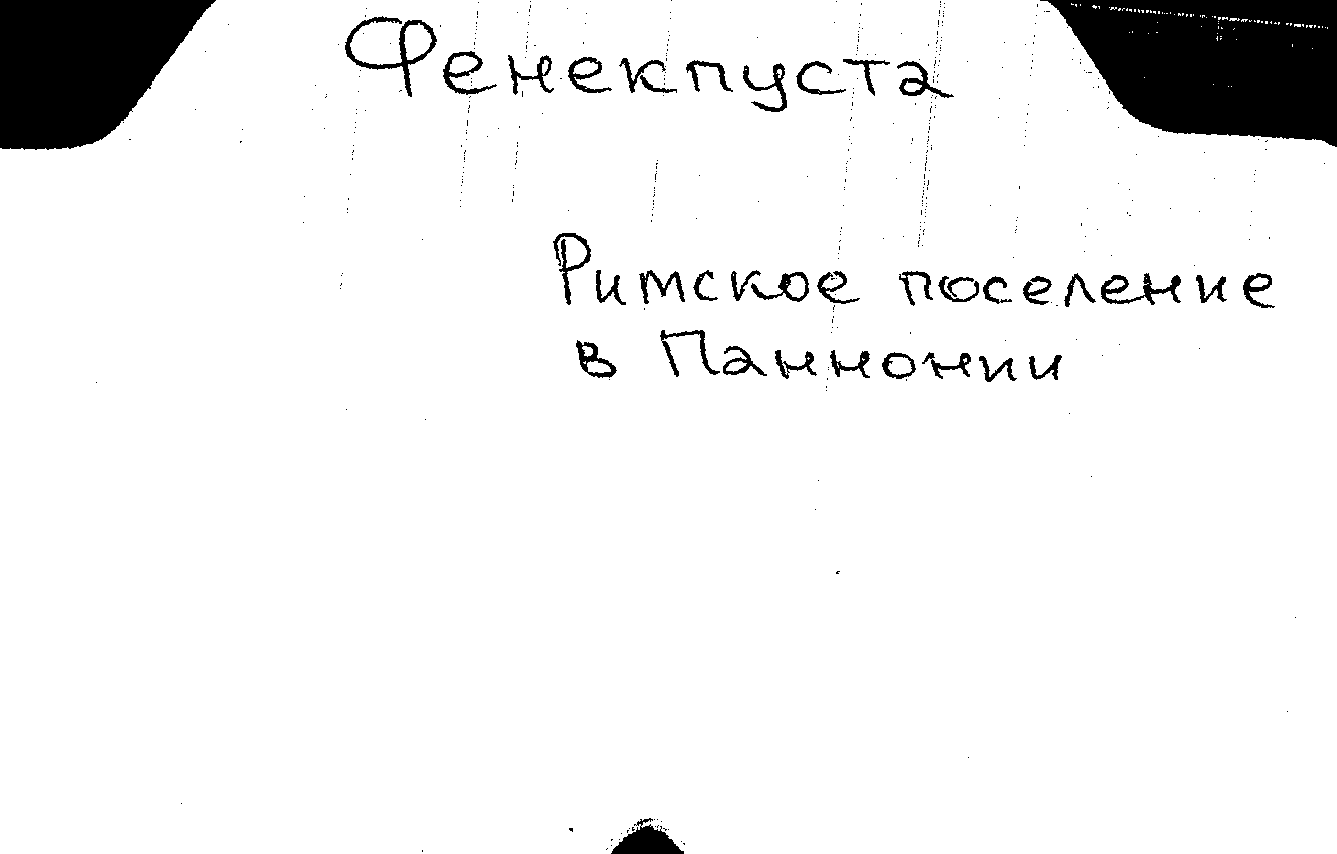 Фенекпуста
Римское поселение
в Паннонии